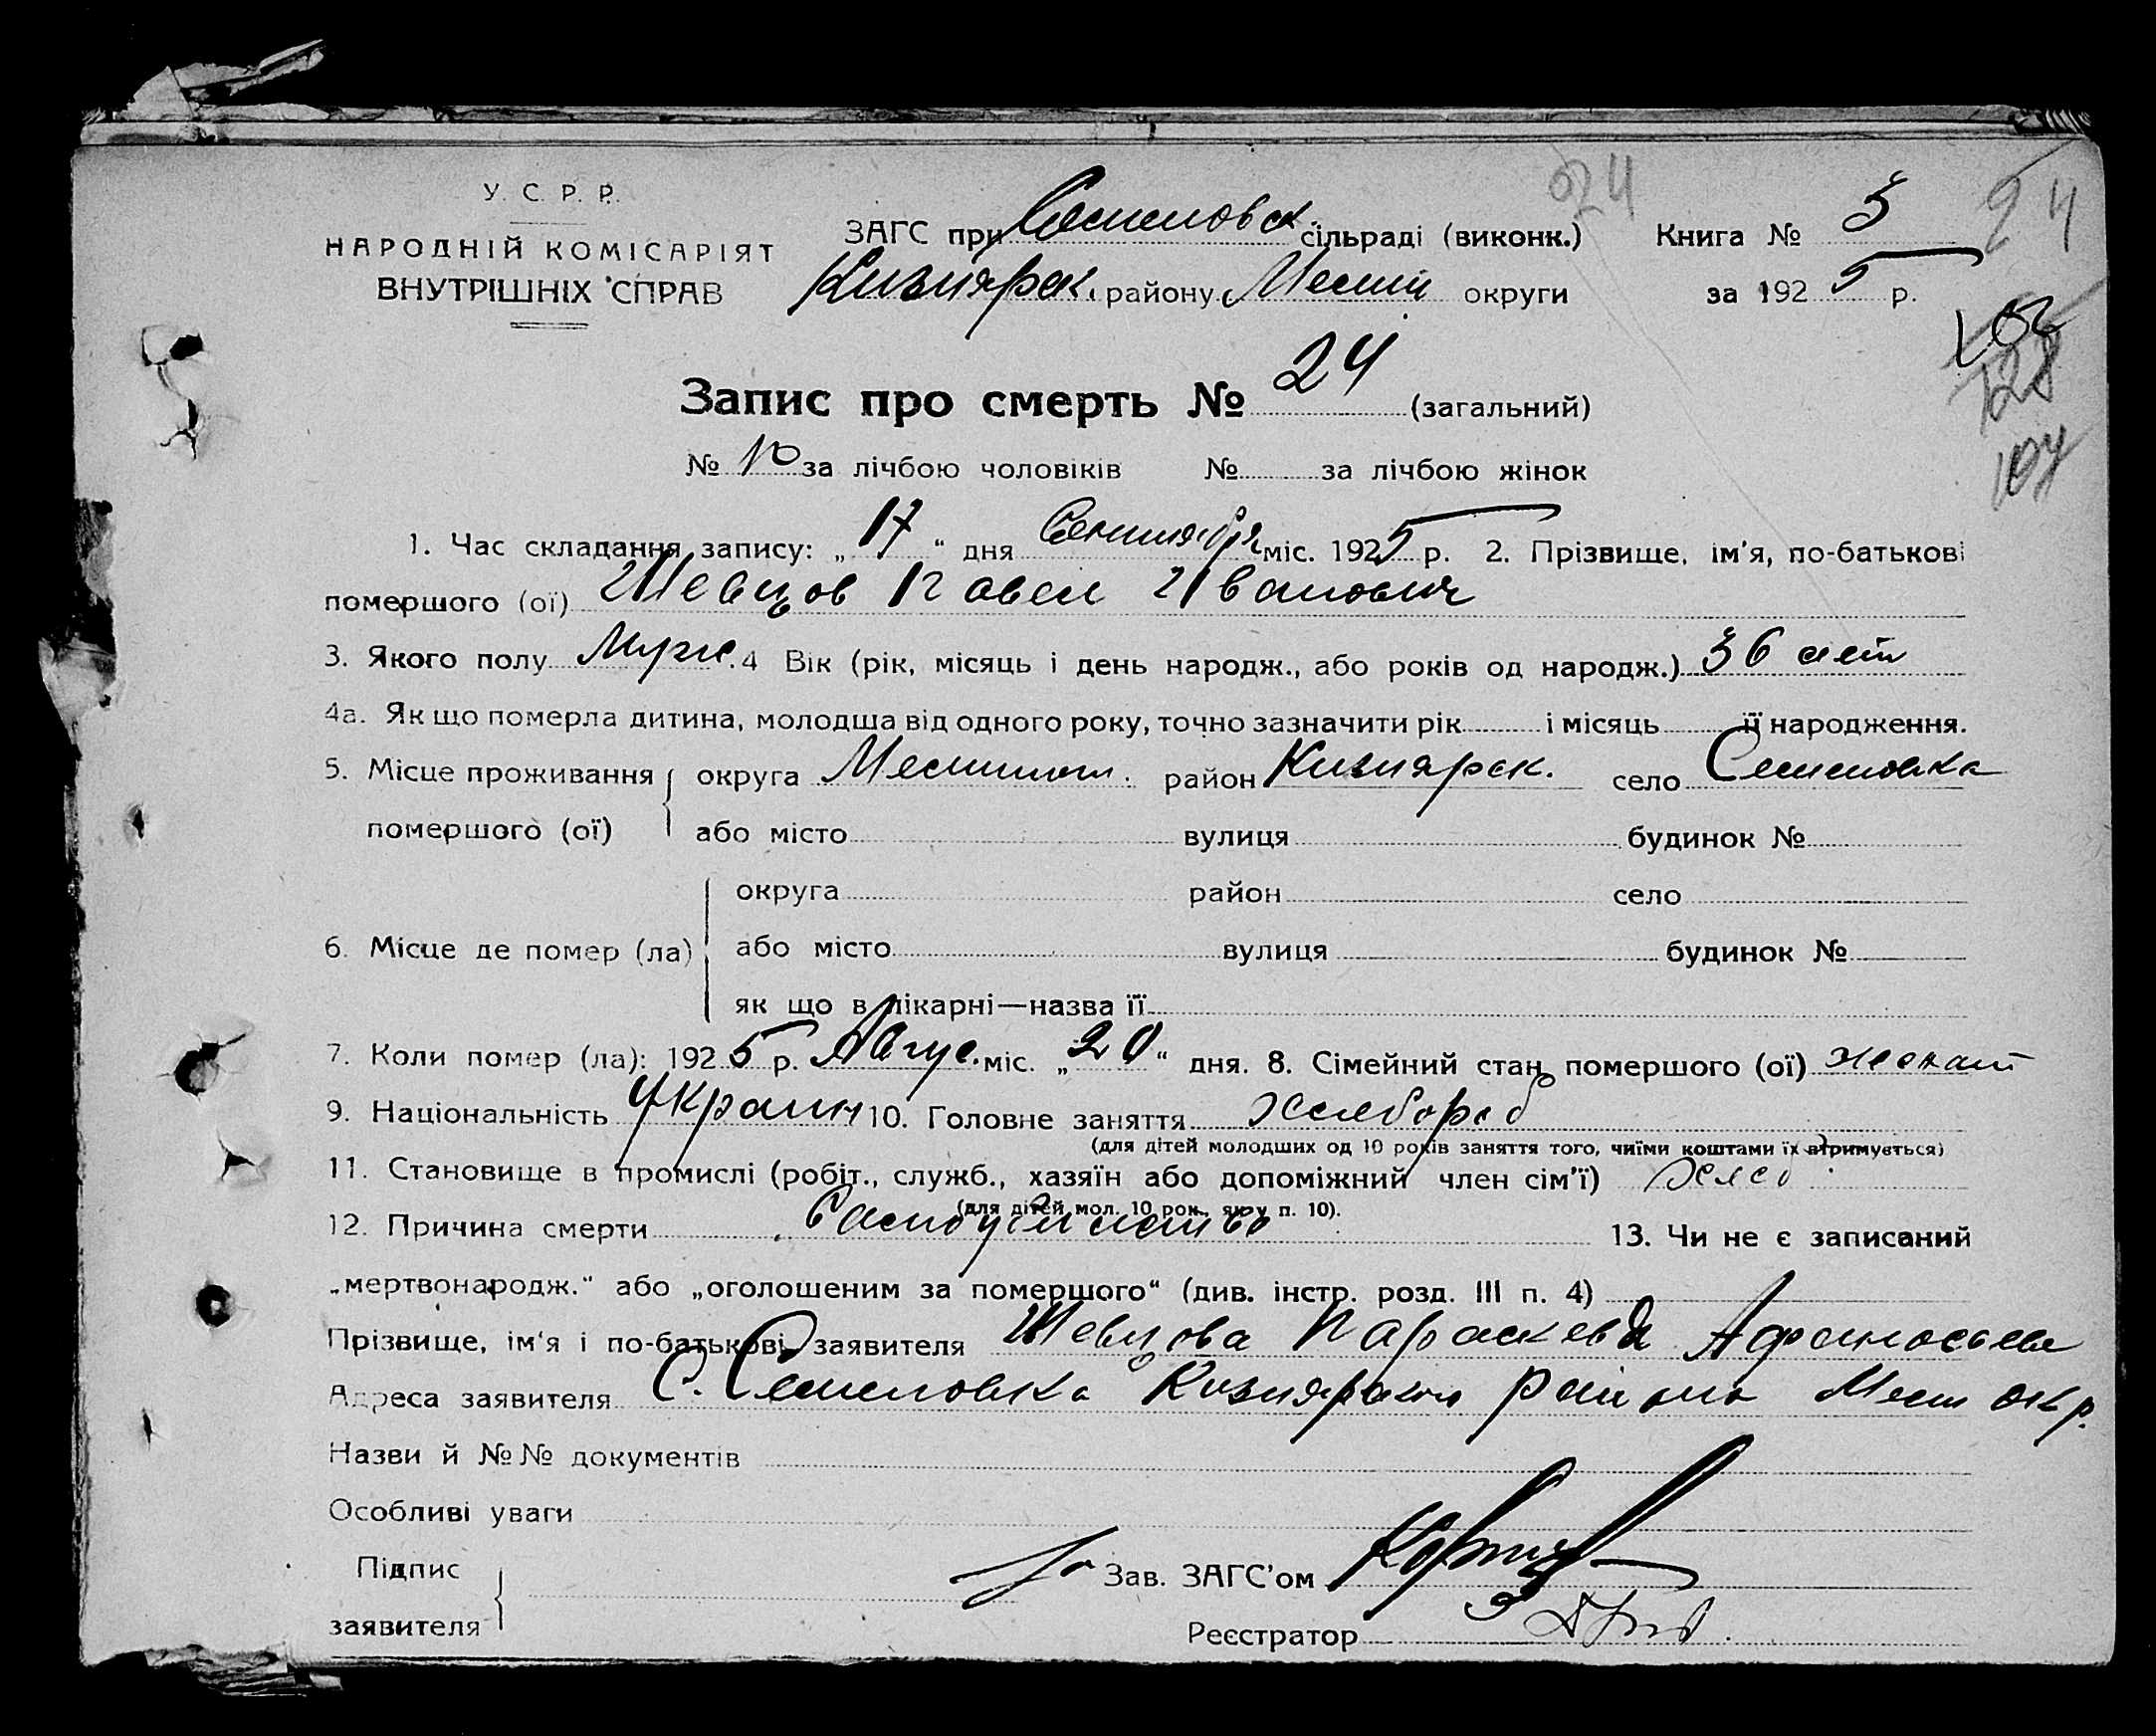 024
24
У. С. Р. Р.
НАРОДНІЙ КОМІСАРІЯТ
ВНУТРІШНІХ СПРАВ
ЗАГС при Семеновск сільраді (виконк.) Книга № 3
Кизиярск. району Мелит округи за 1925 р.
128
107
Запис про смерть № 24 (загальний)
№ 10 за лічбою чоловіків № за лічбою жінок
1. Час складання запису: „17“ дня Сентября міс. 1925 р. 2. Прізвище, ім'я, по-батькові
помершого (ої) Шевцов Павел Иванович
3. Якого полу Муж. 4 Вік (рік, місяць і день народж., або років од народж.) 36 лет
4а. Як що померла дитина, молодша від одного року, точно зазначити рік і місяць її народження.
5. Місце проживання округа Мелитоп. район Кизиярск. село Семеновка
помершого (ої) або місто вулиця будинок №
округа район село
6. Місце де помер (ла) або місто вулиця будинок №
як що в лікарні—назва її
7. Коли помер (ла): 1925 р. Авгус. міс. „20“ дня. 8. Сімейний стан помершого (ої) женат
9. Національність Украин 10. Головне заняття хлебороб
(для дітей молодших од 10 років заняття того, чиїми коштами їх втримується)
11. Становище в промислі (робіт., служб., хазяїн або допоміжний член сім'ї)
(для дітей мол. 10 рок., як у п. 10).
12. Причина смерти 13. Чи не є записаний
„мертвонародж.“ або „оголошеним за помершого“ (див. інстр. розд. III п. 4)
Прізвище, ім'я і по-батькові заявителя Шевцова Параскева Афанасьев
Адреса заявителя С. Семеновка Кизиярского района Мелит окр.
Назви й №№ документів
Особливі уваги
Підпис
заявителя
Зав. ЗАГС'ом
Реєстратор